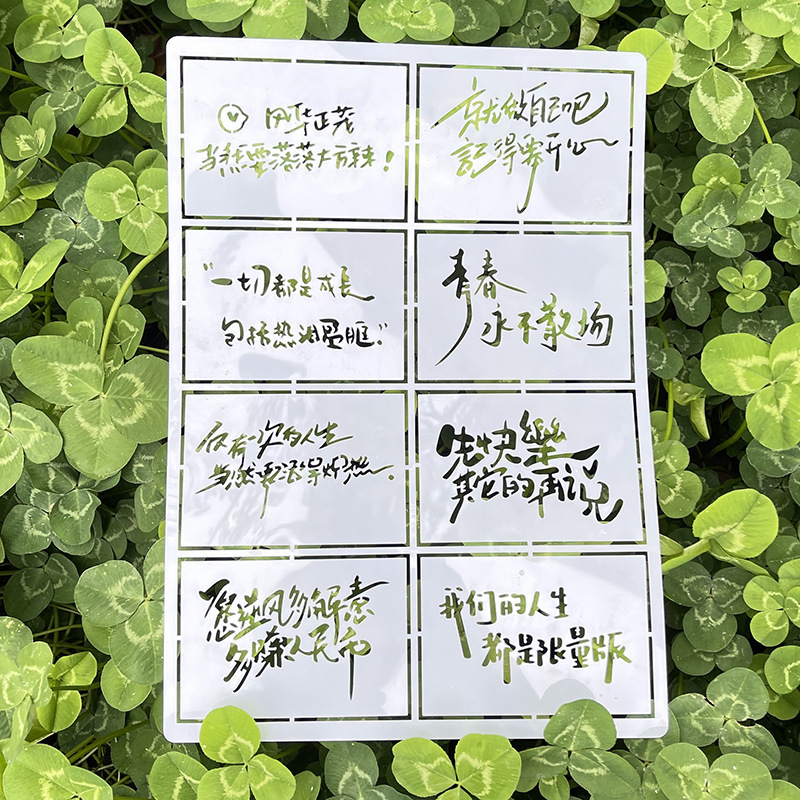 风华正茂
当然要落落大方辣!
就做自己吧
記得要开心
"一切都是成長
包括热泪盈眶."
青春
永不散场
仅有一次的人生
当然要活得炽热.
先快樂
其它的再说
愿风多解意
多赚人民币
我们的人生
都是限量版